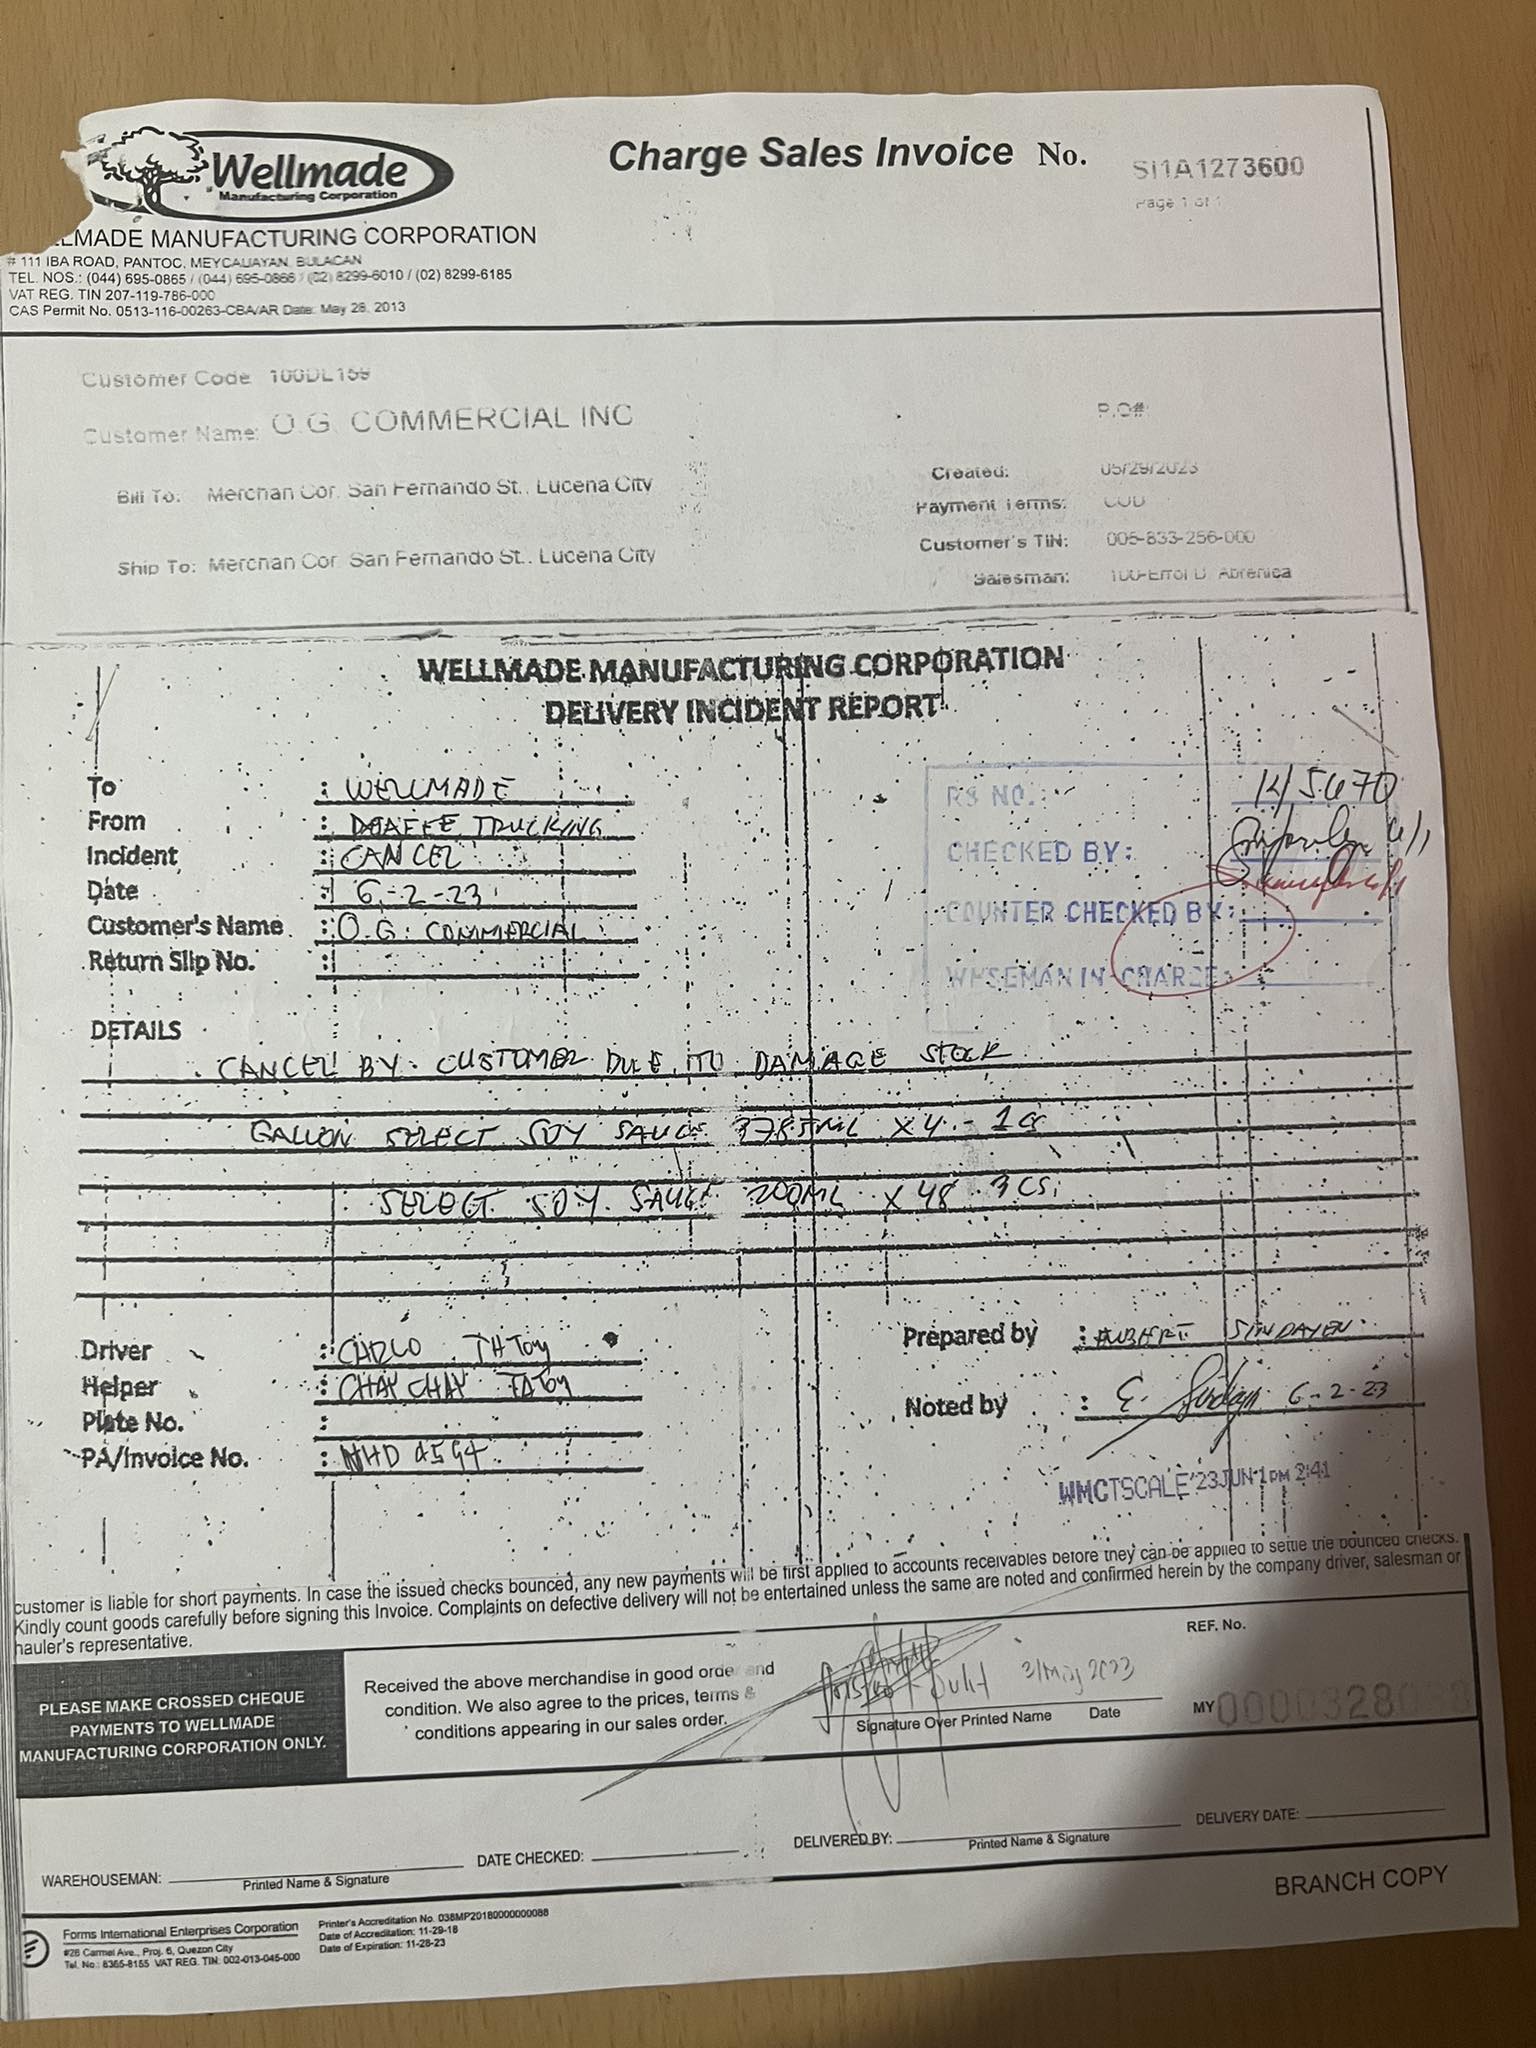 Wellmade
Manufacturing Corporation
Charge Sales Invoice No. SI1A1273600
Page 1 of 1
LLMADE MANUFACTURING CORPORATION
# 111 IBA ROAD, PANTOC, MEYCAUAYAN, BULACAN
TEL. NOS.: (044) 695-0865 / (044) 695-0866 / (02) 8299-6010 / (02) 8299-6185
VAT REG. TIN 207-119-786-000
CAS Permit No. 0513-116-00263-CBA/AR Date: May 28, 2013
Customer Code 100DL159
Customer Name: O.G. COMMERCIAL INC
P.O#
Bill To: Merchan Cor. San Fernando St., Lucena City
Created: 05/29/2023
Payment Terms: COD
Ship To: Merchan Cor. San Fernando St., Lucena City
Customer's TIN: 005-833-256-000
Salesman: 100-Errol D. Abrenica
WELLMADE MANUFACTURING CORPORATION
DELIVERY INCIDENT REPORT
To : WELLMADE
From : TRUCKING
Incident : CANCEL
Date : 6-2-23
Customer's Name : O.G. COMMERCIAL
Return Slip No. :
RS NO.:
CHECKED BY:
COUNTER CHECKED BY:
WHSEMAN IN-CHARGE:
DETAILS
CANCEL BY CUSTOMER DUE TO DAMAGE STOCK
GALLON SELECT SOY SAUCE 3785ML X 4 - 1 CS
SELECT SOY SAUCE 200ML X 48 3 CS
Driver : CARLO
Helper : CHAY CHAY
Plate No. :
PA/Invoice No. : NHD 4594
Prepared by : SINDAYEN
Noted by : E. 6-2-23
WMCTSCALE '23JUN 1PM 2:41
customer is liable for short payments. In case the issued checks bounced, any new payments will be first applied to accounts receivables before they can be applied to settle the bounced checks.
Kindly count goods carefully before signing this Invoice. Complaints on defective delivery will not be entertained unless the same are noted and confirmed herein by the company driver, salesman or
hauler's representative.
PLEASE MAKE CROSSED CHEQUE
PAYMENTS TO WELLMADE
MANUFACTURING CORPORATION ONLY.
Received the above merchandise in good order and
condition. We also agree to the prices, terms &
conditions appearing in our sales order.
31 May 2023
Signature Over Printed Name Date
REF. No.
MY 0000328
WAREHOUSEMAN:
Printed Name & Signature
DATE CHECKED:
DELIVERED BY:
Printed Name & Signature
DELIVERY DATE:
BRANCH COPY
Forms International Enterprises Corporation
#28 Carmel Ave., Proj. 6, Quezon City
Tel. No.: 8365-8155 VAT REG. TIN: 002-013-045-000
Printer's Accreditation No. 038MP20180000000088
Date of Accreditation: 11-29-18
Date of Expiration: 11-28-23